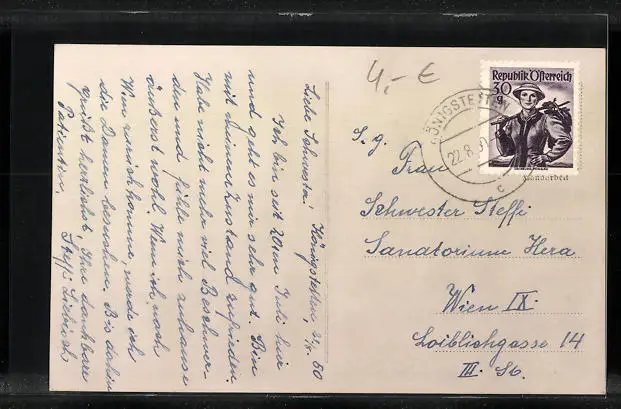 4,- €
Republik Österreich
30
g
KÖNIGSTETTEN
22.8.50
c
Handarbeit
Liebe Schwester! Königstetten, 22/8. 50
Ich bin seit 20ten Juli hier
und geht es mir sehr gut. Bin
mit meinem Zustand zufrieden.
Habe nicht mehr viel Beschwer-
den und fühle mich zuhause
äußerst wohl. Wenn ich nach
Wien komme werde ich
die Damen besuchen. Bis dahin
grüßt herzlichst Ihre dankbare
Patientin, Steffi
S. g.
Frau
Schwester Steffi
Sanatorium Hera
Wien IX.
Loiblichgasse 14
III. St.